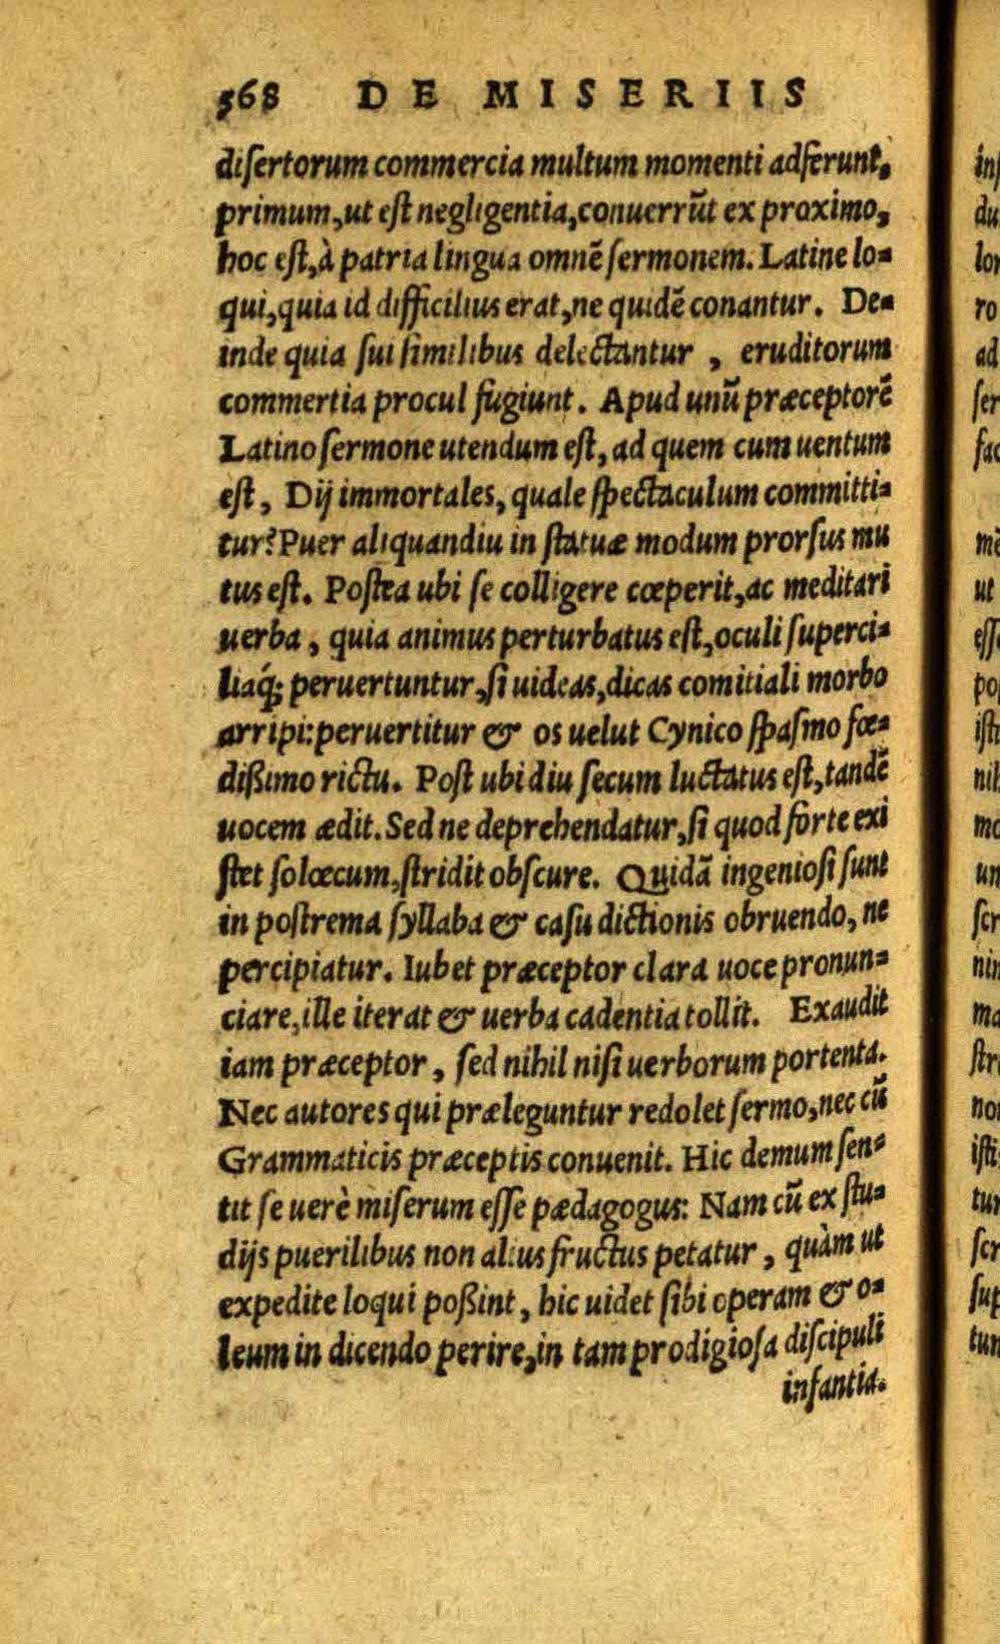 568 DE MISERIIS
disertorum commercia multum momenti adferunt,
primum, ut est negligentia, conuerrũt ex proximo,
hoc est, à patria lingua omnẽ sermonem. Latine lo=
qui, quia id difficilius erat, ne quidẽ conantur. De=
inde quia sui similibus delectantur, eruditorum
commertia procul fugiunt. Apud unũ præceptorẽ
Latino sermone utendum est, ad quem cum uentum
est, Dij immortales, quale spectaculum committi=
tur? Puer aliquandiu in statuæ modum prorsus mu
tus est. Postea ubi se colligere cœperit, ac meditari
uerba, quia animus perturbatus est, oculi superci=
liaq́; peruertuntur, si uideas, dicas comitiali morbo
arripi: peruertitur & os uelut Cynico spasmo fœ=
dißimo rictu. Post ubi diu secum luctatus est, tandẽ
uocem ædit. Sed ne deprehendatur, si quod forte exi
stet solœcum, stridit obscure. Quidã ingeniosi sunt
in postrema syllaba & casu dictionis obruendo, ne
percipiatur. Iubet præceptor clara uoce pronun=
ciare, ille iterat & uerba cadentia tollit. Exaudit
iam præceptor, sed nihil nisi uerborum portenta.
Nec autores qui præleguntur redolet sermo, nec cũ
Grammaticis præceptis conuenit. Hic demum sen=
tit se uerè miserum esse pædagogus: Nam cũ ex stu=
dijs puerilibus non alius fructus petatur, quàm ut
expedite loqui poßint, hic uidet sibi operam & o=
leum in dicendo perire, in tam prodigiosa discipuli
infantia.